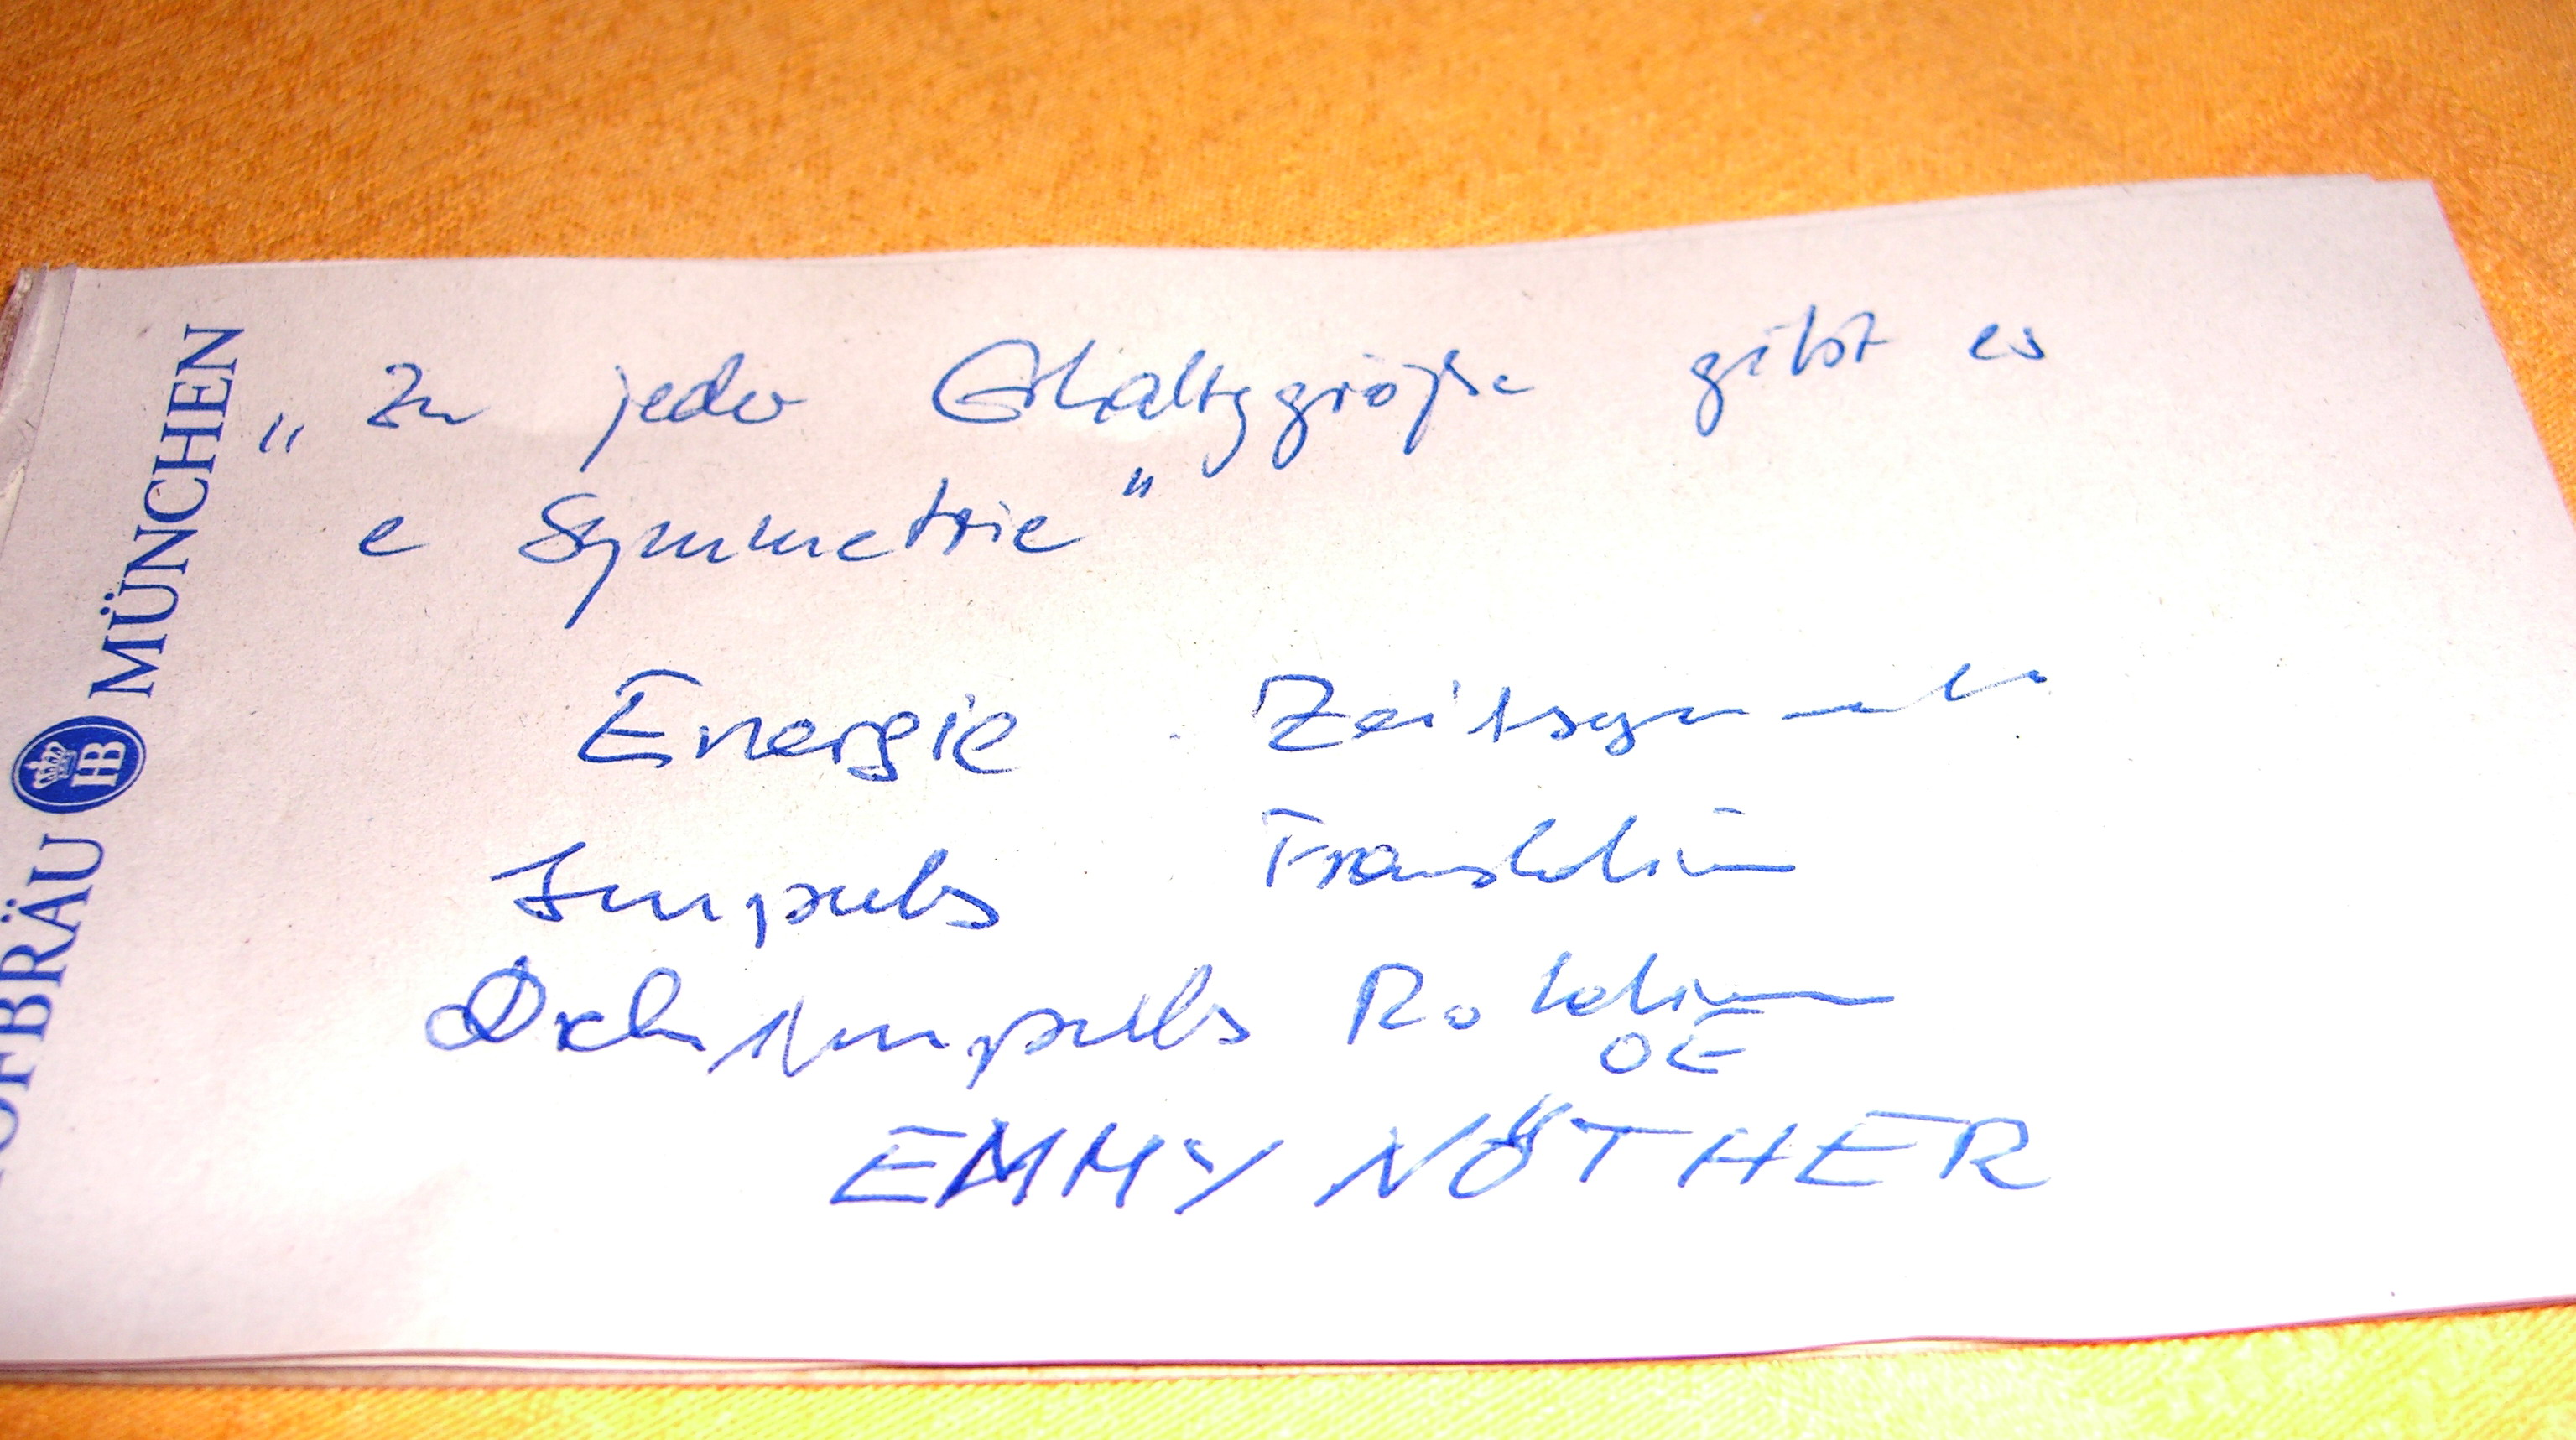 „Zu jeder Erhaltgsgröße gibt es
e Symmetrie"
Energie Zeitsymm
Impuls Translation
Drehimpuls Rotation
OE
EMMY NÖTHER
HOFBRÄU HB MÜNCHEN